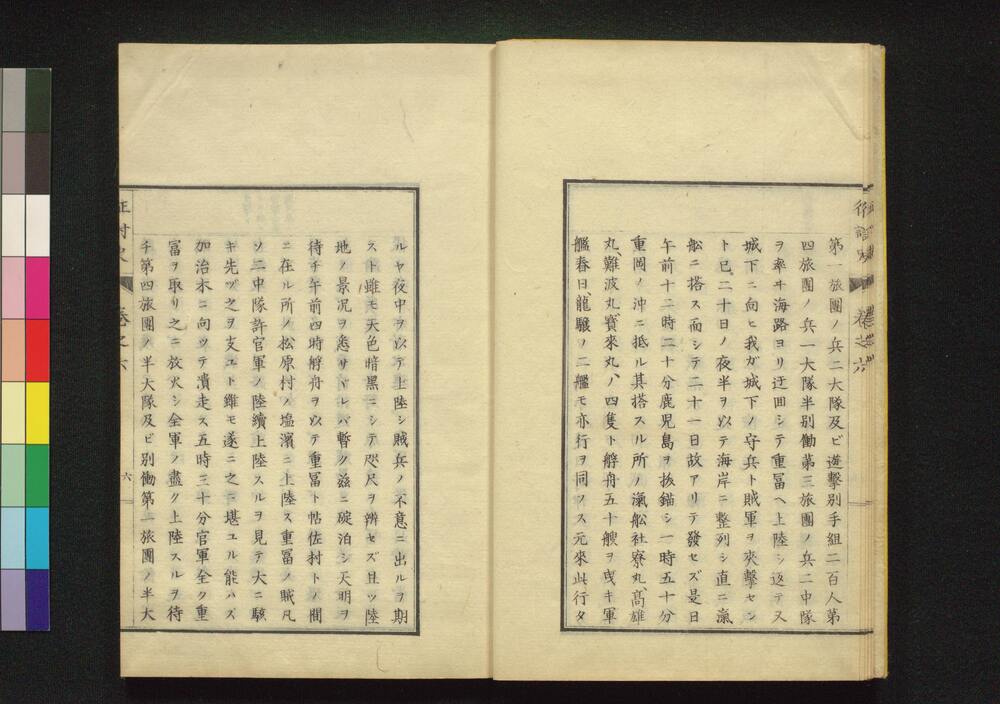 征討史
卷之六
第一旅團ノ兵二大隊及ビ遊擊別手組二百人第
四旅團ノ兵一大隊半別働第三旅團ノ兵二中隊
ヲ率ヰ海路ヨリ迂回シテ重冨ヘ上陸シ返テ又
城下ニ向ヒ我ガ城下ノ守兵ト賊軍ヲ夾擊セン
ト已ニ二十日ノ夜半ヲ以テ海岸ニ整列シ直ニ滊
舩ニ搭ス而シテ二十一日故アリテ發セズ是日
午前十二時二十分鹿児島ヲ拔錨シ一時五十分
重岡ノ沖ニ抵ル其搭スル所ノ滊舩社寮丸、高雄
丸、難波丸、寶來丸、ノ四隻ト艀舟五十艘ヲ曳キ軍
艦春日、龍驤ノ二艦モ亦行ヲ同フス元來此行タ
ルヤ夜中ヲ以テ上陸シ賊兵ノ不意ニ出ルヲ期
スト雖モ天色暗黒ニシテ咫尺ヲ辨セズ且ツ陸
地ノ景况ヲ悉サヾレバ暫ク茲ニ碇泊シ天明ヲ
待チ午前四時艀舟ヲ以テ重冨ト帖佐村トノ間
ニ在ル所ノ松原村ノ塩濱ニ上陸ス重冨ノ賊凡
ソ二中隊許官軍ノ陸續上陸スルヲ見テ大ニ駭
キ先ヅ之ヲ支ユト雖モ遂ニ之ニ堪ユル能ハズ
加治木ニ向ツテ潰走ス五時三十分官軍全ク重
冨ヲ取リ之ニ放火シ全軍ノ盡ク上陸スルヲ待
チ第四旅團ノ半大隊及ビ別働第一旅團ノ半大
征討史
卷之六
六